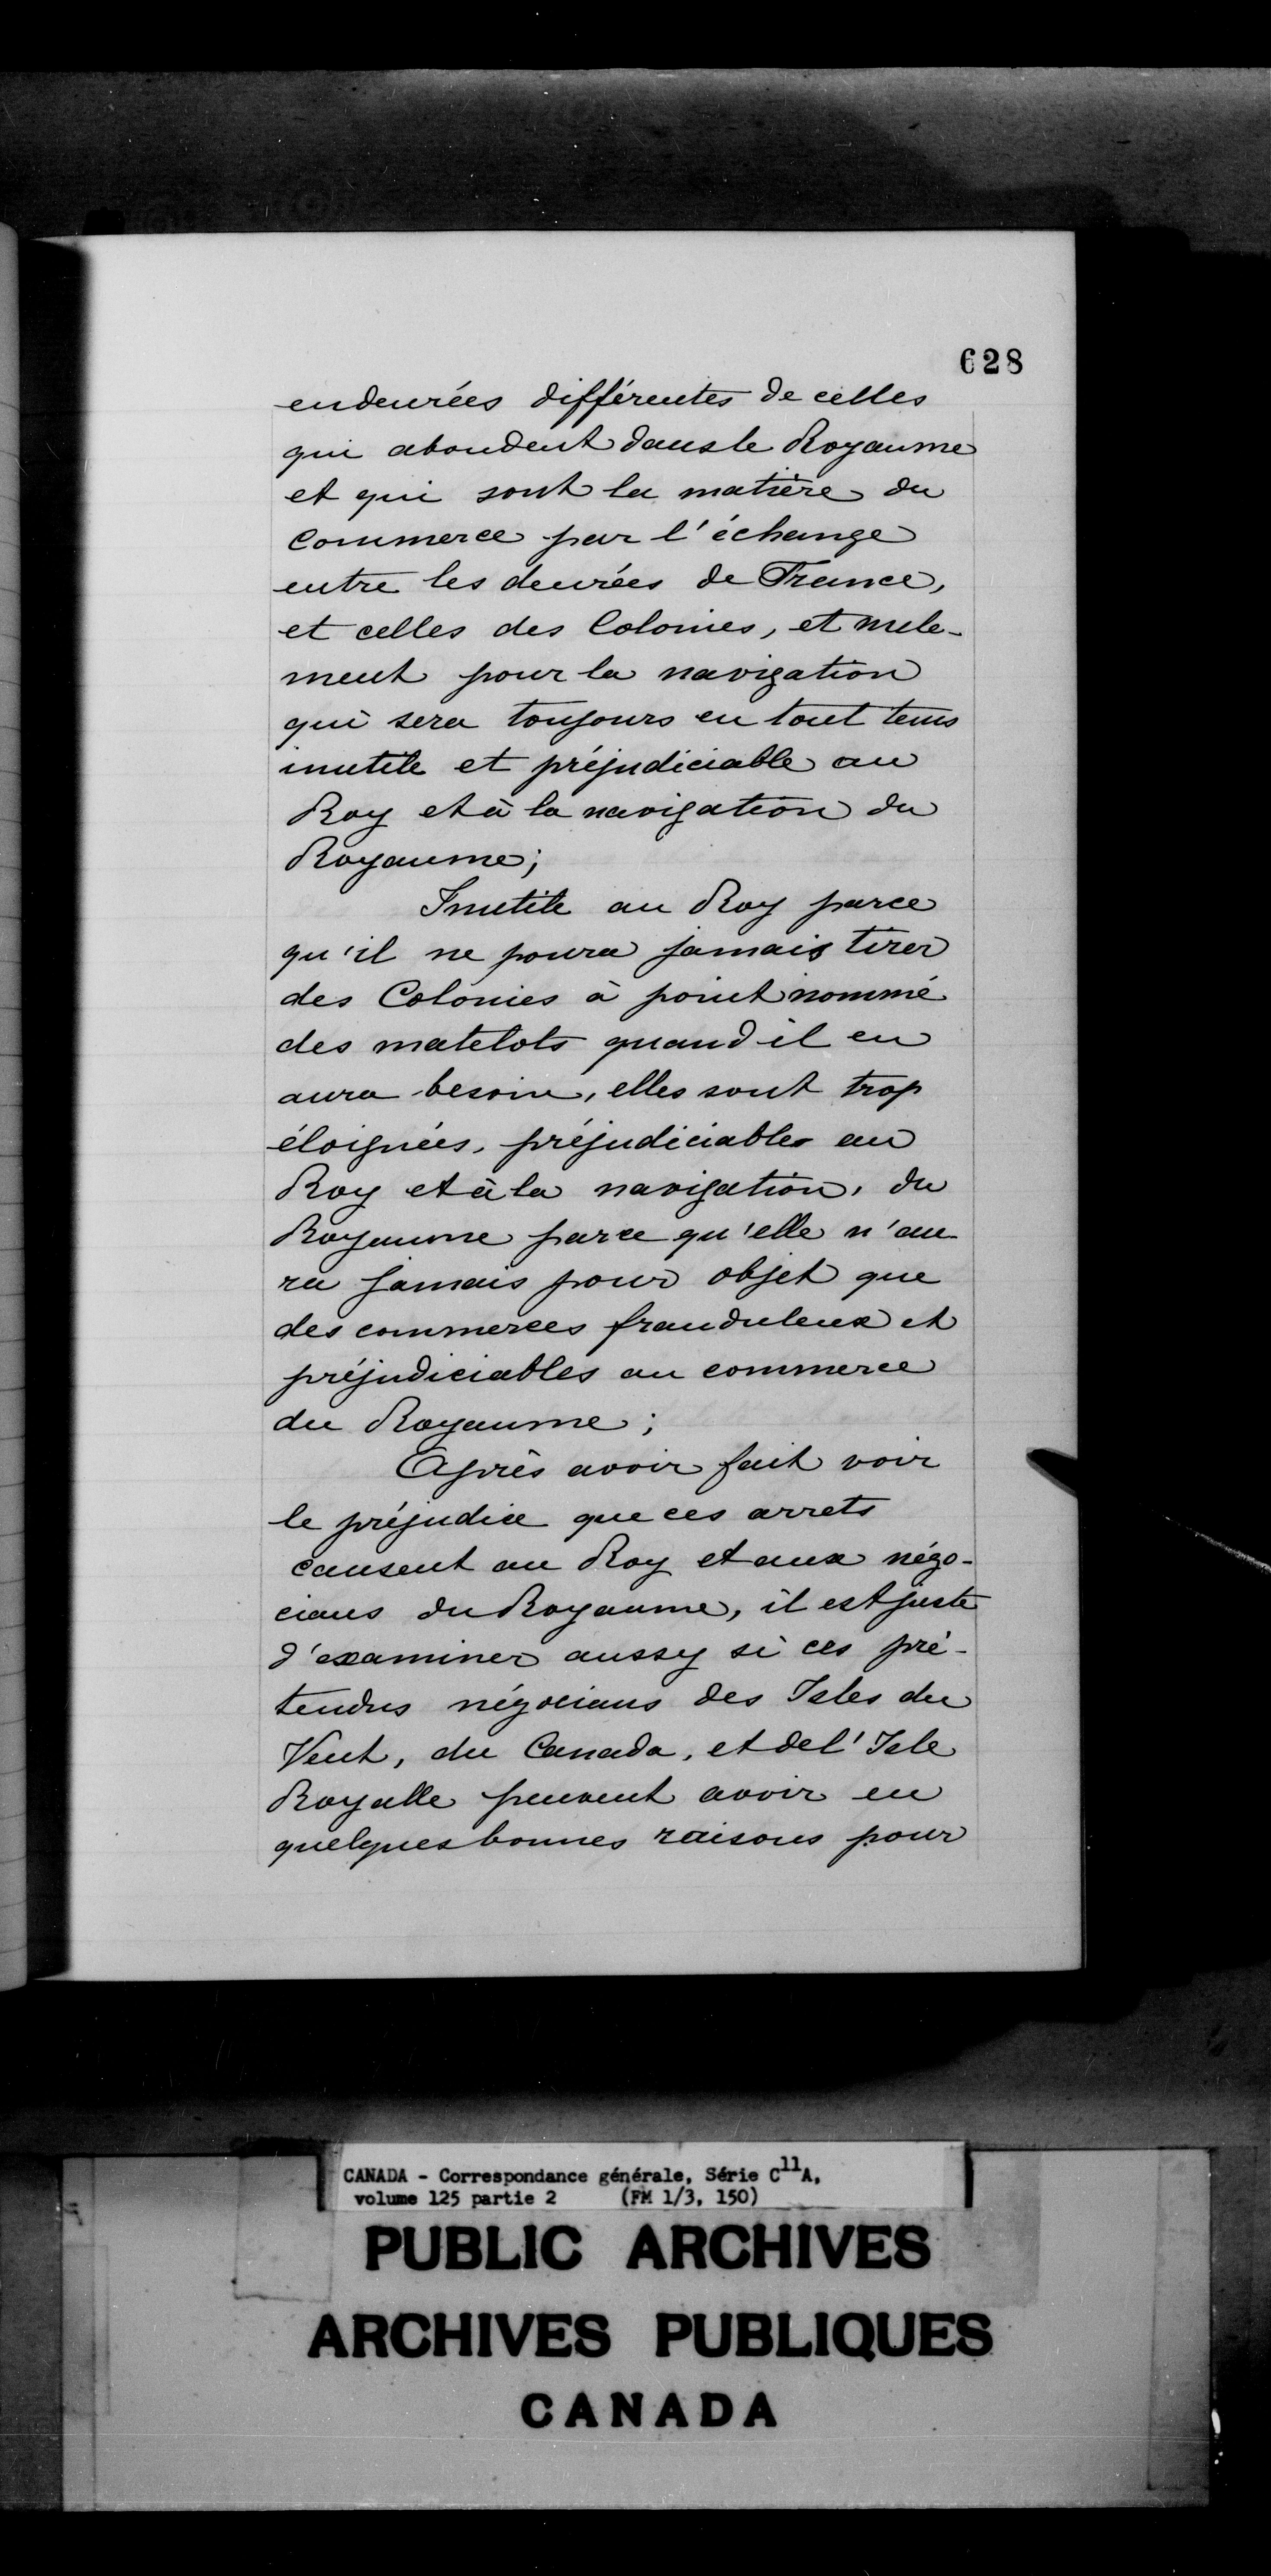 628
endenrées différentes de celles
qui abondent dans le Royaume
et qui sont la matière du
Commerce par l'échange
entre les denrées de France,
et celles des Colonies, et nule-
ment pour la navigation
qui sera toujours en tout tems
inutile et préjudiciable au
Roy et à la navigation du
Royaume;
Inutile au Roy parce
qu'il ne poura jamais tirer
des Colonies à point nommé
des matelots quand il en
aura besoin, elles sont trop
éloignées, préjudiciable au
Roy et à la navigation, du
Royaume parce qu'elle n'au-
ra jamais pour objet que
des commerces frauduleux et
préjudiciables au commerce
du Royaume;
Après avoir fait voir
le préjudice que ces arrets
causent au Roy et aux négo-
cians du Royaume, il est juste
d'examiner aussy si ces pré-
tendus négocians des Isles du
Vent, du Canada, et de l'Isle
Royalle peuvent avoir eu
quelques bonnes raisons pour
CANADA - Correspondance générale, Série C11A,
volume 125 partie 2 (FM 1/3, 150)
PUBLIC ARCHIVES
ARCHIVES PUBLIQUES
CANADA